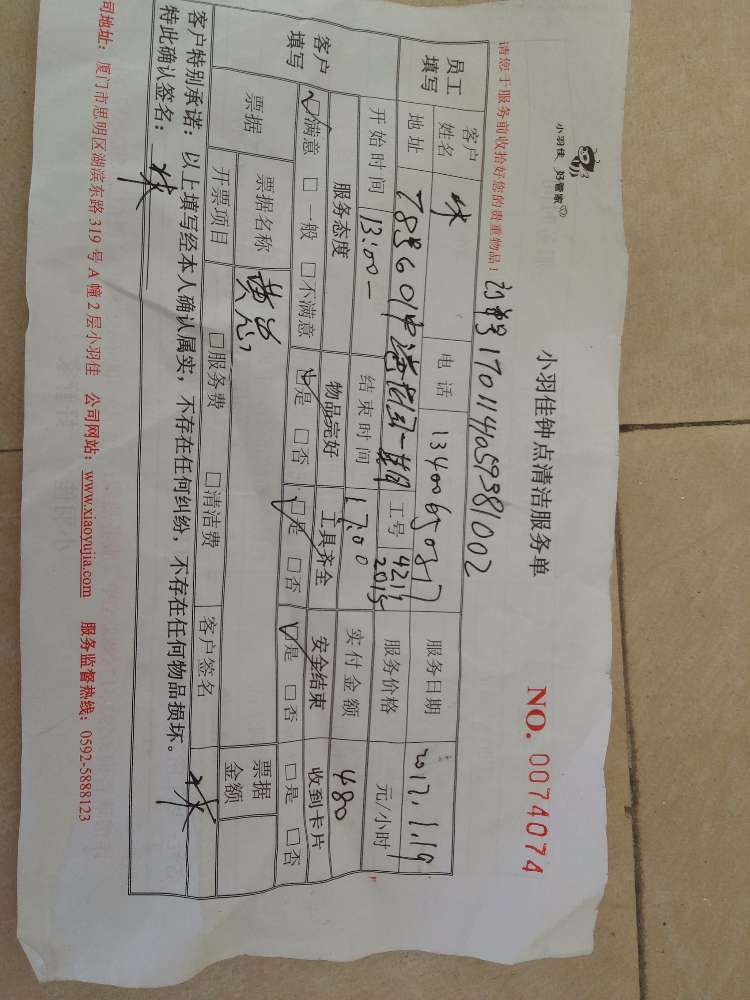 小羽佳 好管家
小羽佳钟点清洁服务单
NO. 0074074
请您于服务前收拾好您的贵重物品！ 170114059381002
员工填写 客户姓名 电话 13400650317 服务日期 2017.1.19
地址 工号 4217 2015 服务价格 元/小时
开始时间 13:00— 结束时间 17:00 实付金额 480
客户填写 服务态度 物品完好 工具齐全 安全结束 收到卡片
☑满意 □一般 □不满意 ☑是 □否 ☑是 □否 ☑是 □否 □是 □否
票据 票据名称 票据金额
开票项目 □服务费 □清洁费 客户签名
客户特别承诺：以上填写经本人确认属实，不存在任何纠纷，不存在任何物品损坏。
特此确认签名：
司地址：厦门市思明区湖滨东路319号A幢2层小羽佳 公司网站：www.xiaoyujia.com 服务监督热线：0592-5888123